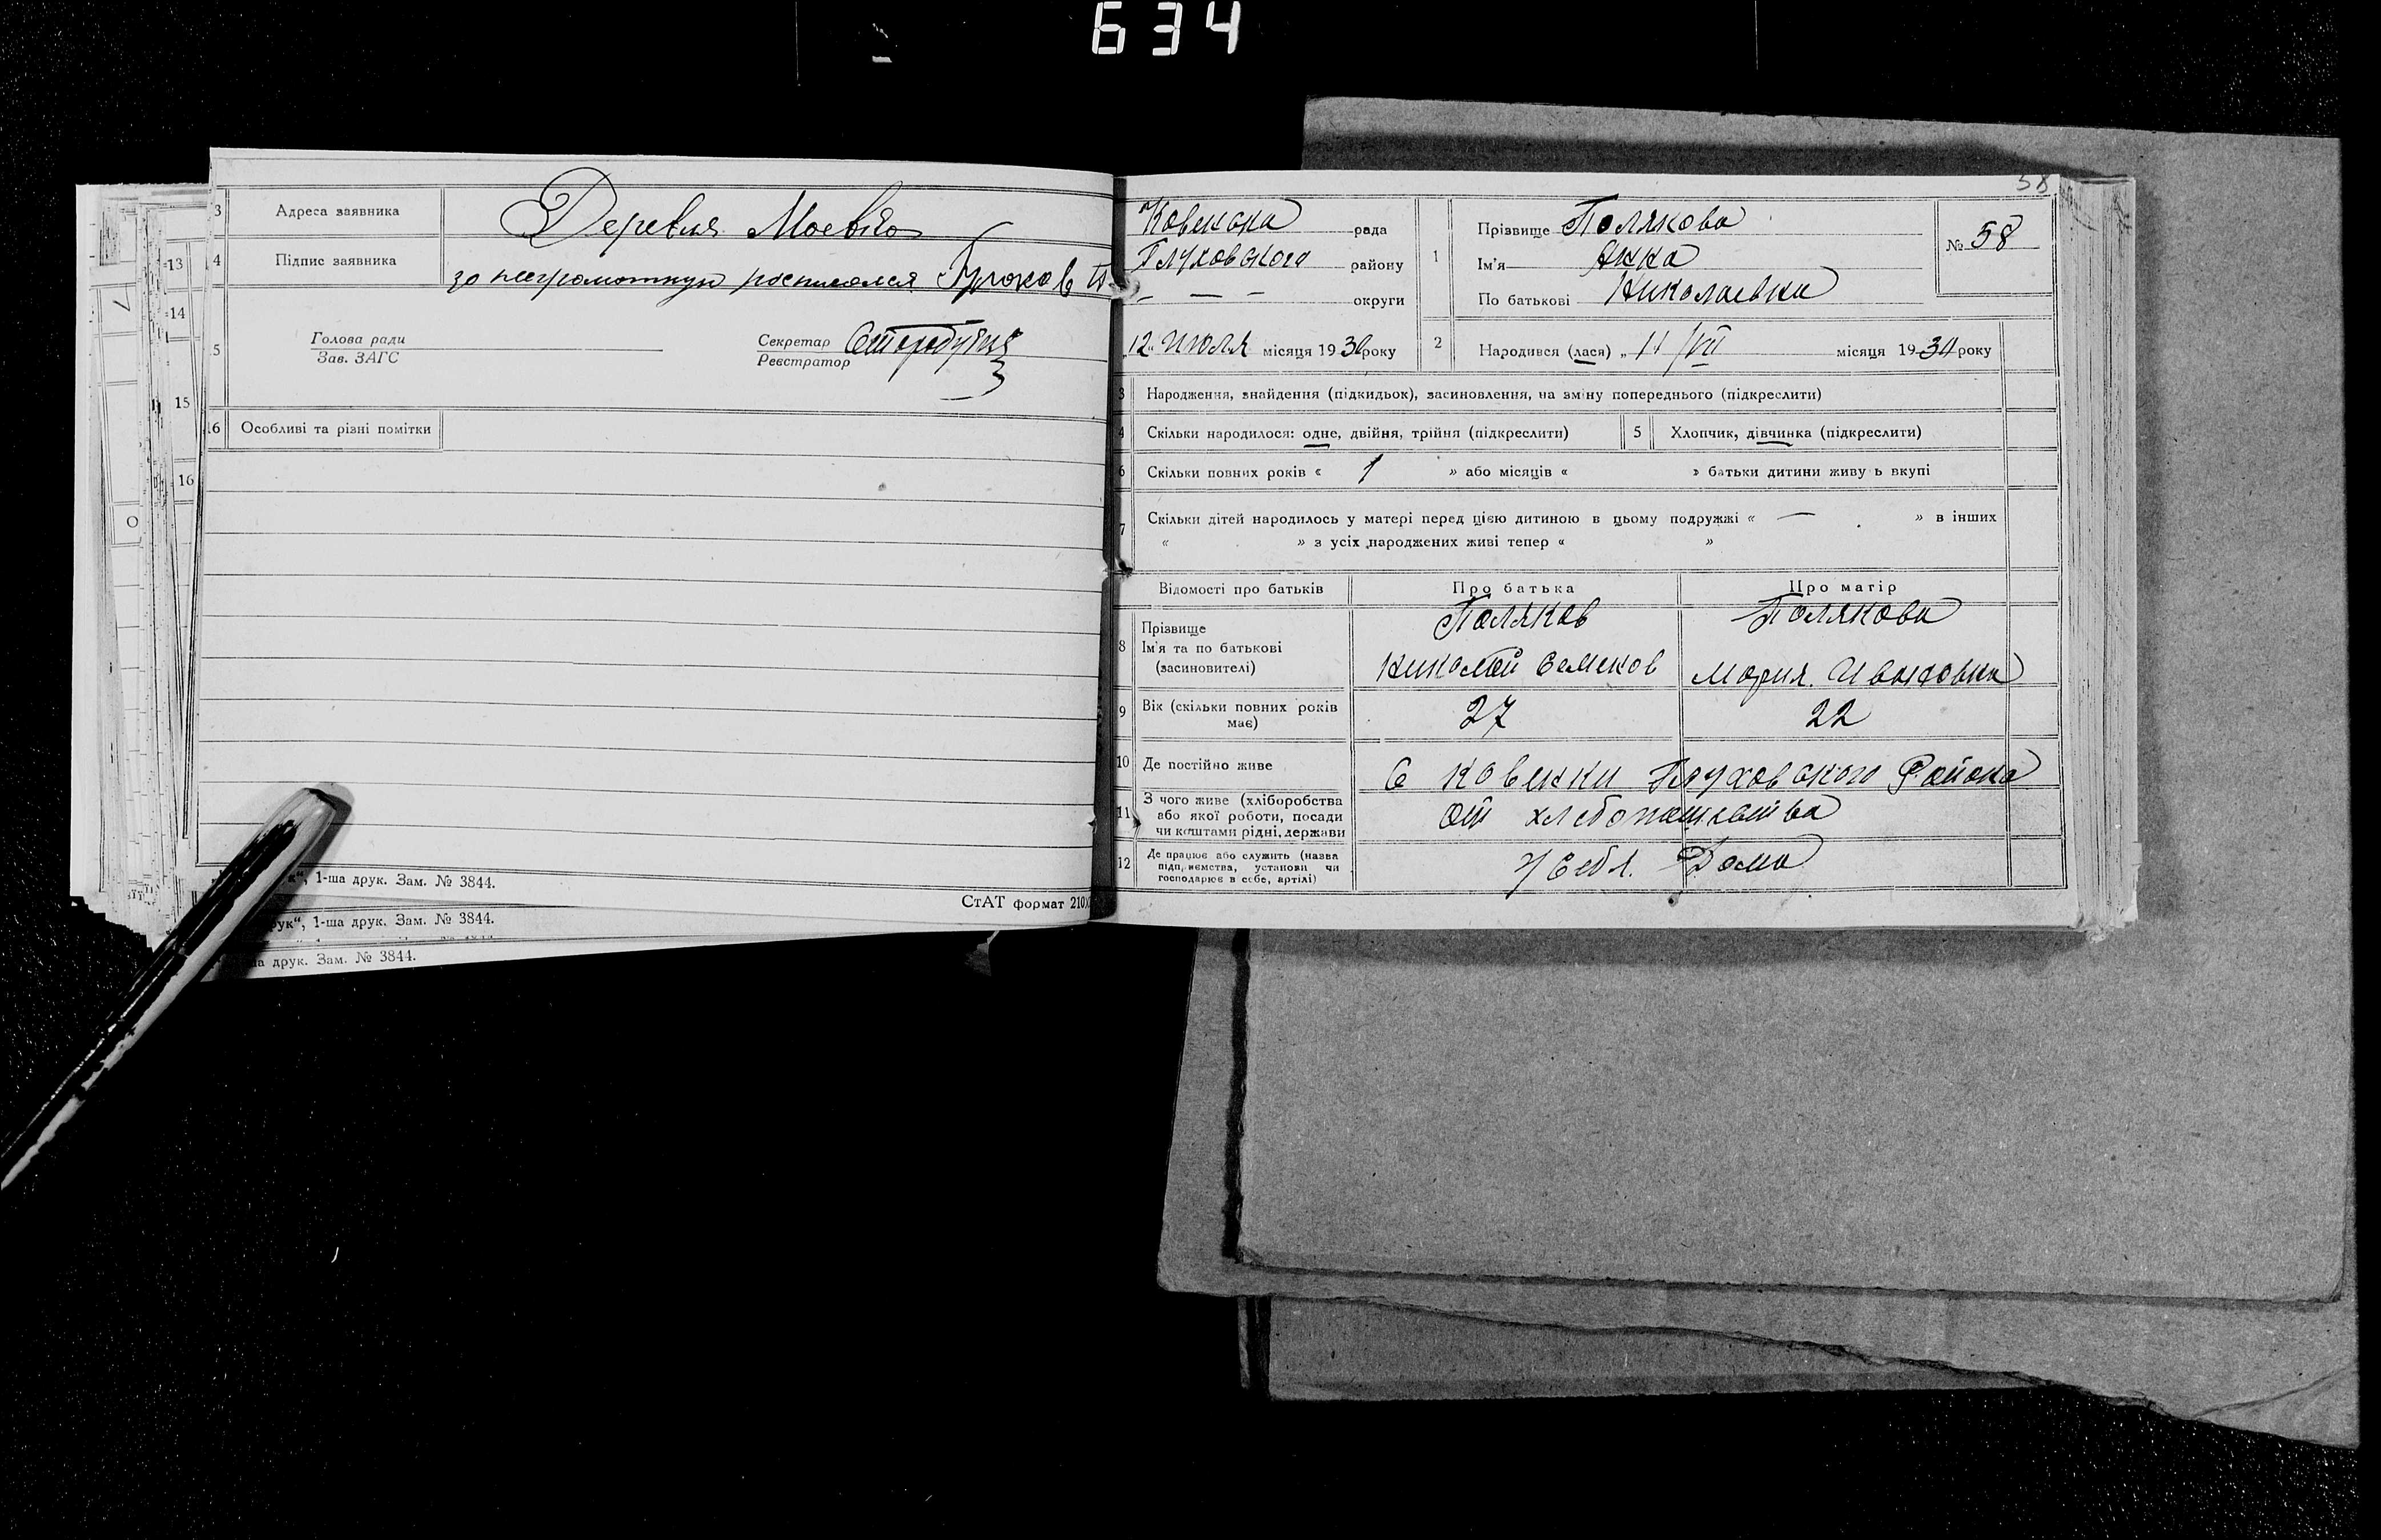 634
3 Адреса заявника Деревня Моевка
4 Підпис заявника за неграмотную росписался
5 Голова ради
Зав. ЗАГС
Секретар
Реєстратор
16 Особливі та різні помітки
13
14
15
16
1-ша друк. Зам. № 3844.
СтАТ формат 210
рук“, 1-ша друк. Зам. № 3844.
ша друк. Зам. № 3844.
58
рада
Глуховского району
— — — округи
„12„ июля місяця 1930 року
1 Прізвище Полякова
Ім'я Анна
По батькові Николаевна
№ 58
2 Народився (лася) „ 11/VII місяця 1930 року
3 Народження, знайдення (підкидьок), засиновлення, на зміну попереднього (підкреслити)
4 Скільки народилося: одне, двійня, трійня (підкреслити) 5 Хлопчик, дівчинка (підкреслити)
6 Скільки повних років « 1 » або місяців « » батьки дитини живу ь вкупі
7 Скільки дітей народилось у матері перед цією дитиною в цьому подружжі « — » в інших
« » з усіх народжених живі тепер « »
Відомості про батьків Про батька Про матір
8 Прізвище
Ім'я та по батькові
(засиновителі)
Поляков
Николай Семенов
Полякова
Мария Ивановна
9 Вік (скільки повних років
має) 27 22
10 Де постійно живе С Ковенки Глуховского Района
11 З чого живе (хліборобства
або якої роботи, посади
чи коштами рідні, держави
От хлебопашества
12 Де працює або служить (назва
підприємства, установи чи
господарює в себе, артілі)
У себя Дома